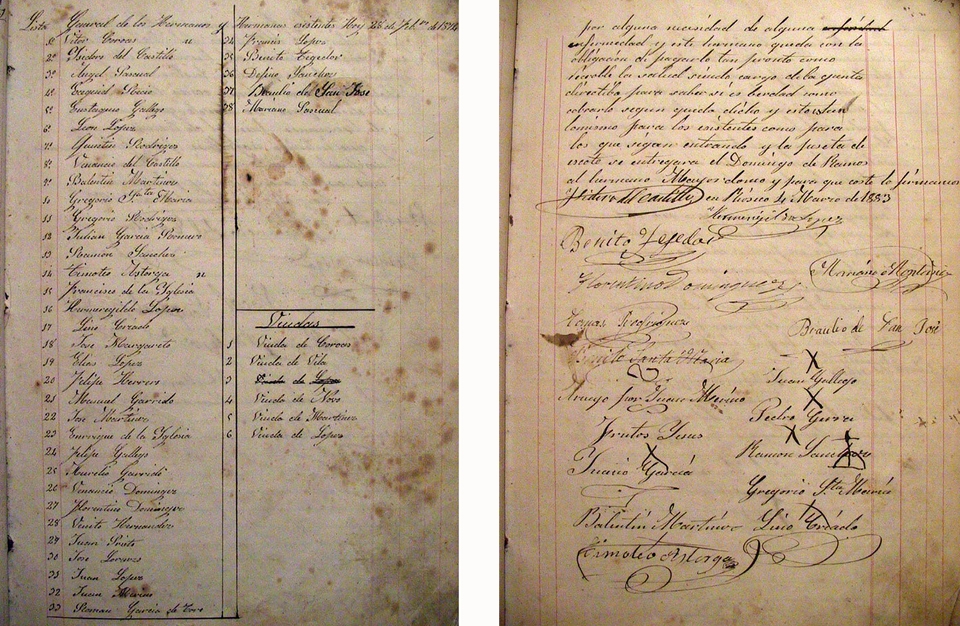 Lista General de los Hermanos y Hermanas existentes Hoy 28 de de 1894
1º Vitor Corcas
2º Ysidoro del Castillo
3º Angel Pascual
4º Ezequiel Recio
5º Eustaquio Gallego
6º Leon Lopez
7º Quintin Rodrigos
8º Venancio del Castillo
9º Balentin Martinez
10 Gregorio Sta Maria
11 Gregorio Rodrigos
12 Julian Garcia Romero
13 Ramon Sanchez
14 Timoteo Astorga
15 Francisco de la Yglesia
16 Hermenejildo Lopez
17 Lino Criado
18 Jose Margareto
19 Elias Lopez
20 Felipe Herrero
21 Manuel Garrido
22 Jose Martinez
23 Enrrique de la Yglesia
24 Felipe Gallego
25 Aurelio Garrido
26 Venancio Dominguez
27 Florentino Dominguez
28 Benito Hernandez
29 Juan Prieto
30 Jose Lorenzo
31 Juan Lopez
32 Juan Merino
33 Roman Garcia de Toro
34 Francis Lopez
35 Benito Tegedor
36 Delfino Sanchez
37 Braulio de San Jose
38 Mariano Pascual
Viudas
1 Viuda de Corcas
2 Viuda de Vila
3 Viuda de Lopez
4 Viuda de Novo
5 Viuda de Martinez
6 Viuda de Lopez
por alguna necesidad de alguna
enfermedad y este hermano queda con la
obligacion de pagarlo tan pronto como
recoble la salud siendo cargo de la gunta
diretiva para saber si es berdad como
cobrarlo segun queda dicho y esto sera
lo mismo para los esistentes como para
los que sigan entrando y la suseta de
escote se entregara el Domingo de Ramos
al hermano Mayordomo y para que coste lo firmamos
Ysidoro del Castillo en Rioseco 4 Marzo de 1883
Hermenejildo Lopez
Benito Tejedor
Florentino Dominguez
Mariano
Tomas Rodriguez
Braulio de San José
Benito Santa Maria
Juan Gallego
Arruego por Juan Merino
Pedro Guerra
Frutos Ynus
Ramon Sanchez
Juario Garcia
Gregorio Sta Maria
Balintin Martinez Lino Criado
Timoteo Astorga